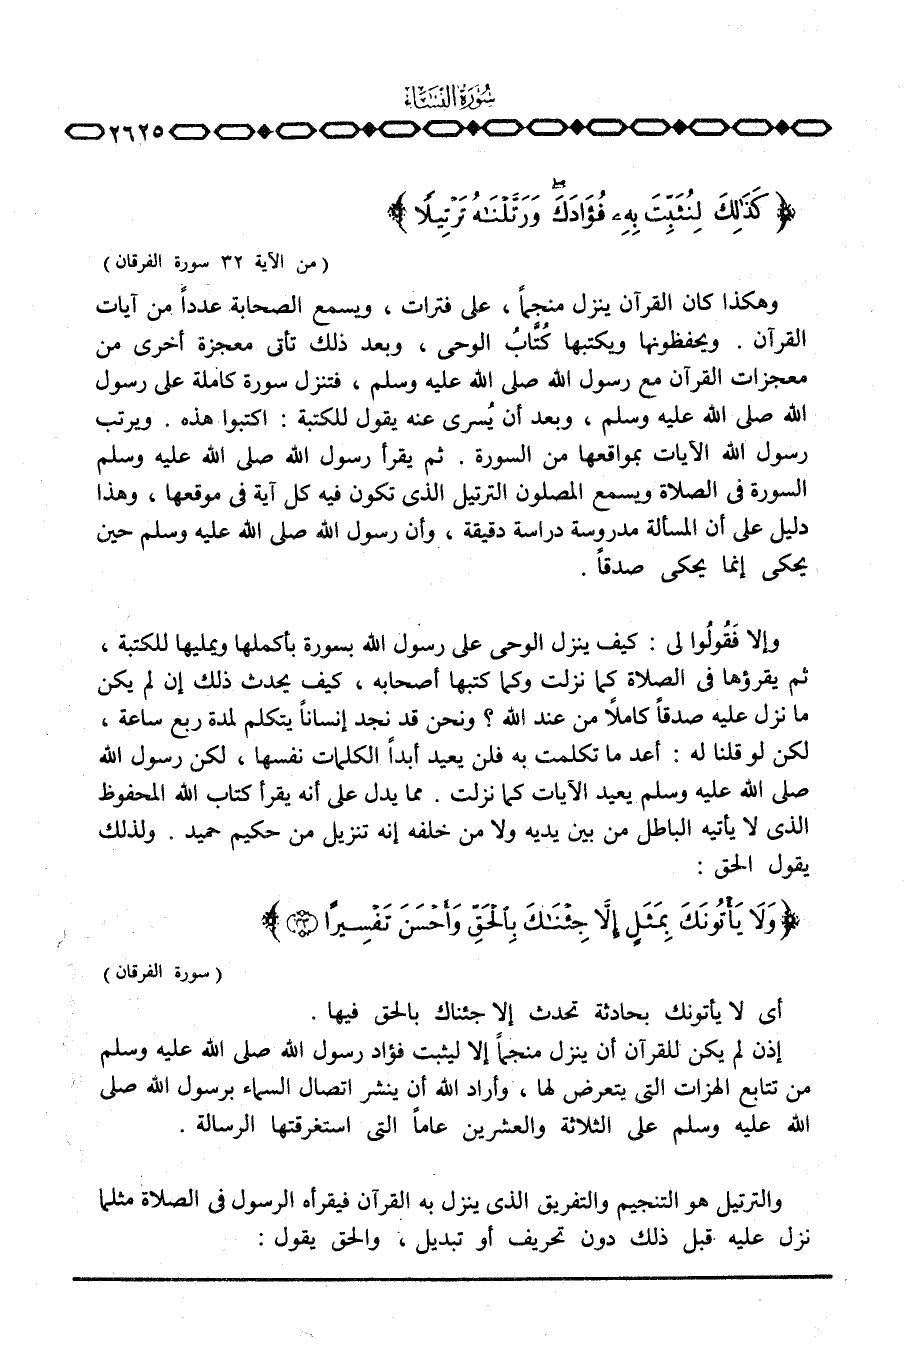 سُورَةُ النِّسَاء
٢٦٢٥
﴿ كَذَٰلِكَ لِنُثَبِّتَ بِهِۦ فُؤَادَكَ ۖ وَرَتَّلْنَٰهُ تَرْتِيلًا ﴾
( من الآية ٣٢ سورة الفرقان )
وهكذا كان القرآن ينزل منجماً ، على فترات ، ويسمع الصحابة عدداً من آيات
القرآن . ويحفظونها ويكتبها كُتَّابُ الوحى ، وبعد ذلك تأتى معجزة أخرى من
معجزات القرآن مع رسول الله صلى الله عليه وسلم ، فتنزل سورة كاملة على رسول
الله صلى الله عليه وسلم ، وبعد أن يُسرى عنه يقول للكتبة : اكتبوا هذه . ويرتب
رسول الله الآيات بمواقعها من السورة . ثم يقرأ رسول الله صلى الله عليه وسلم
السورة فى الصلاة ويسمع المصلون الترتيل الذى تكون فيه كل آية فى موقعها ، وهذا
دليل على أن المسألة مدروسة دراسة دقيقة ، وأن رسول الله صلى الله عليه وسلم حين
يحكى إنما يحكى صدقاً .
وإلا فَقُولُوا لى : كيف ينزل الوحى على رسول الله بسورة بأكملها ويمليها للكتبة ،
ثم يقرؤها فى الصلاة كما نزلت وكما كتبها أصحابه ، كيف يحدث ذلك إن لم يكن
ما نزل عليه صدقاً كاملاً من عند الله ؟ ونحن قد نجد إنساناً يتكلم لمدة ربع ساعة ،
لكن لو قلنا له : أعد ما تكلمت به فلن يعيد أبداً الكلمات نفسها ، لكن رسول الله
صلى الله عليه وسلم يعيد الآيات كما نزلت . مما يدل على أنه يقرأ كتاب الله المحفوظ
الذى لا يأتيه الباطل من بين يديه ولا من خلفه إنه تنزيل من حكيم حميد . ولذلك
يقول الحق :
﴿ وَلَا يَأْتُونَكَ بِمَثَلٍ إِلَّا جِئْنَٰكَ بِٱلْحَقِّ وَأَحْسَنَ تَفْسِيرًا ٣٣ ﴾
( سورة الفرقان )
أى لا يأتونك بحادثة تحدث إلا جئناك بالحق فيها .
إذن لم يكن للقرآن أن ينزل منجماً إلا ليثبت فؤاد رسول الله صلى الله عليه وسلم
من تتابع الهزات التى يتعرض لها ، وأراد الله أن ينشر اتصال السماء برسول الله صلى
الله عليه وسلم على الثلاثة والعشرين عاماً التى استغرقتها الرسالة .
والترتيل هو التنجيم والتفريق الذى ينزل به القرآن فيقرأه الرسول فى الصلاة مثلما
نزل عليه قبل ذلك دون تحريف أو تبديل ، والحق يقول :